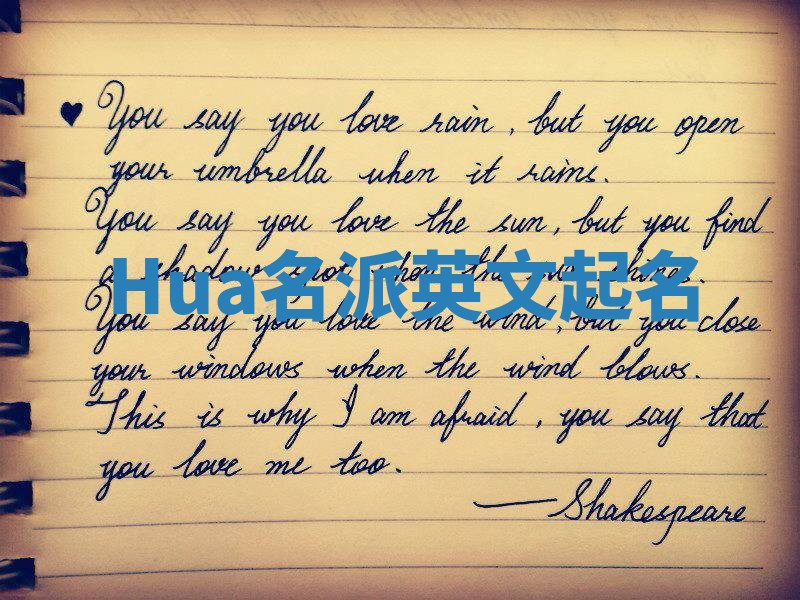 ♥ You say you love rain, but you open
your umbrella when it rains.
You say you love the sun, but you find
a shadow spot when the sun shines.
Hua名派英文起名
You say you love the wind, but you close
your windows when the wind blows.
This is why I am afraid, you say that
you love me too.
—Shakespeare